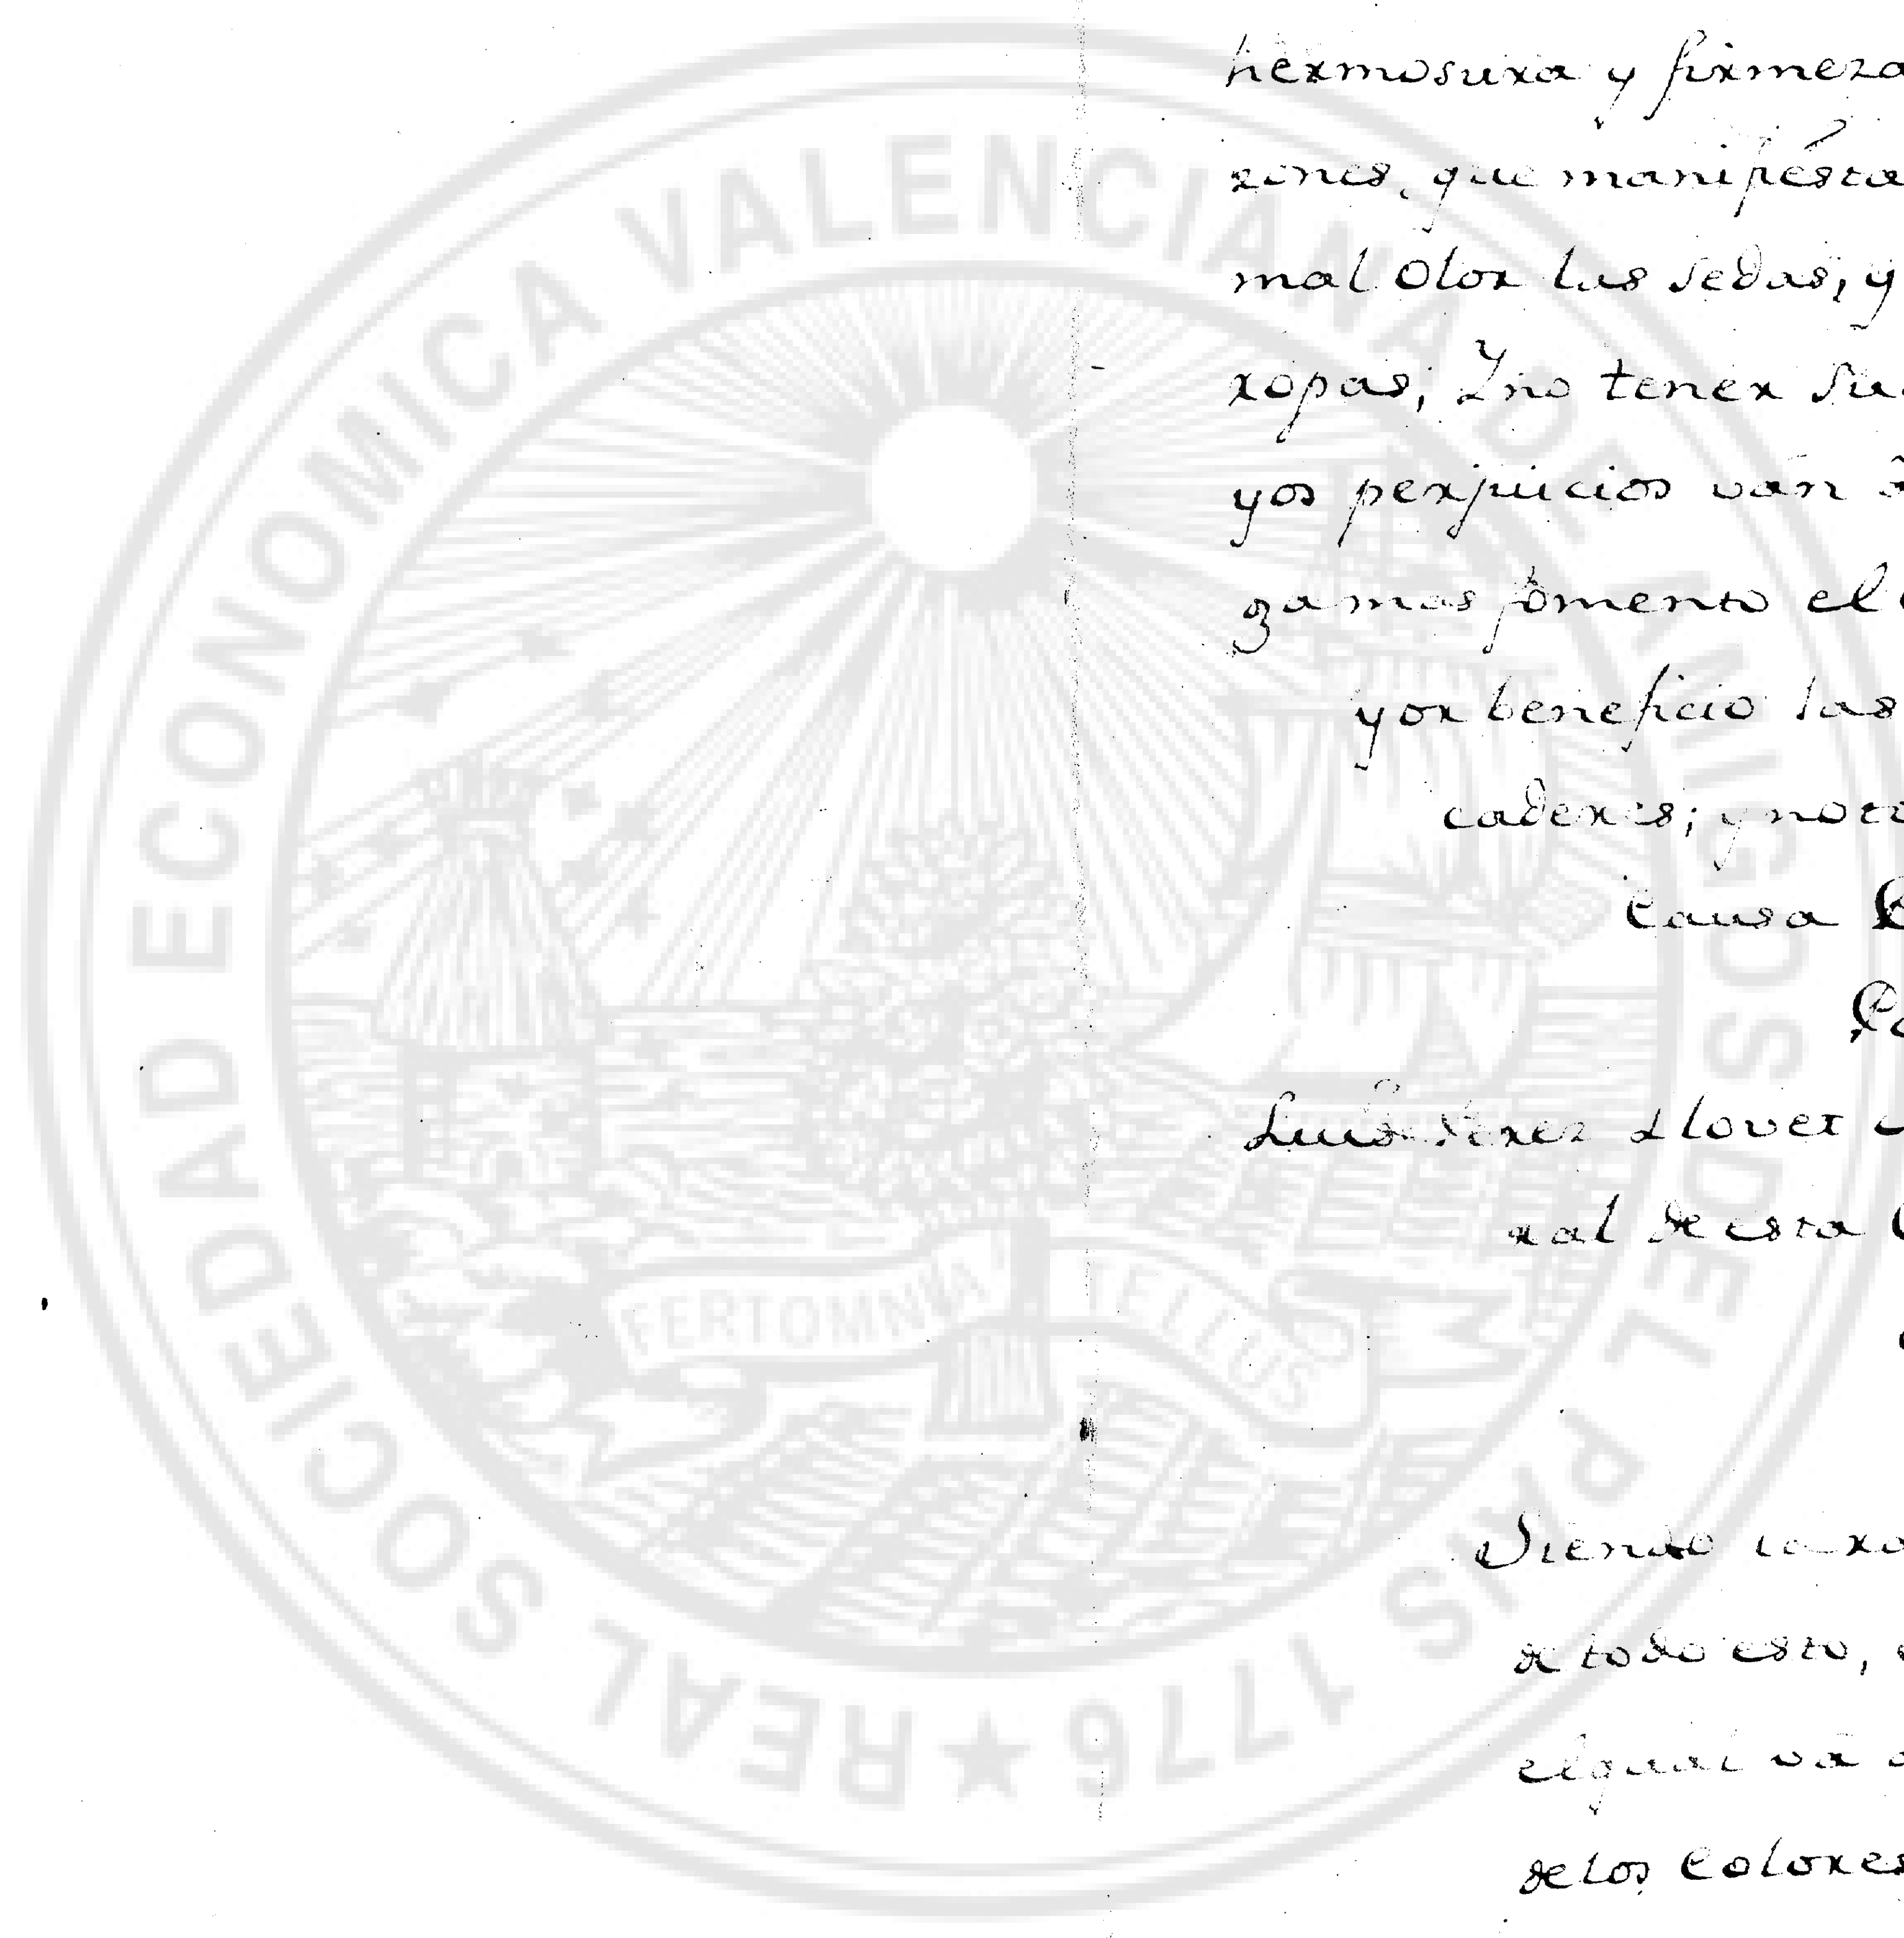 hermosura y firmeza
zones, que manifésta
mal Olor las sedas; y
ropas; Y no tener su
yos perjuicios ván â
zamas fomento el
yor beneficio las
caderes; y no to
Causa
Luis Perez Llovet
ral de esta
Siendo la
de todo esto,
el qual vá
de los Colores
REAL SOCIEDAD ECONOMICA VALENCIANA DE AMIGOS DEL PAIS 1776
FERT OMNIA TELLUS